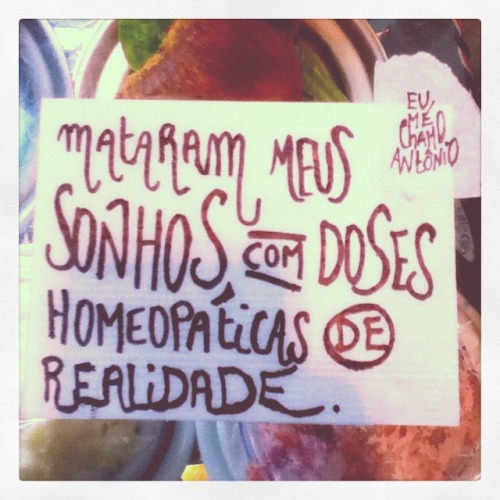 MATARAM MEUS
SONHOS, COM DOSES
HOMEOPÁTICAS DE
REALIDADE.
EU
ME
CHAMO
ANTÔNIO